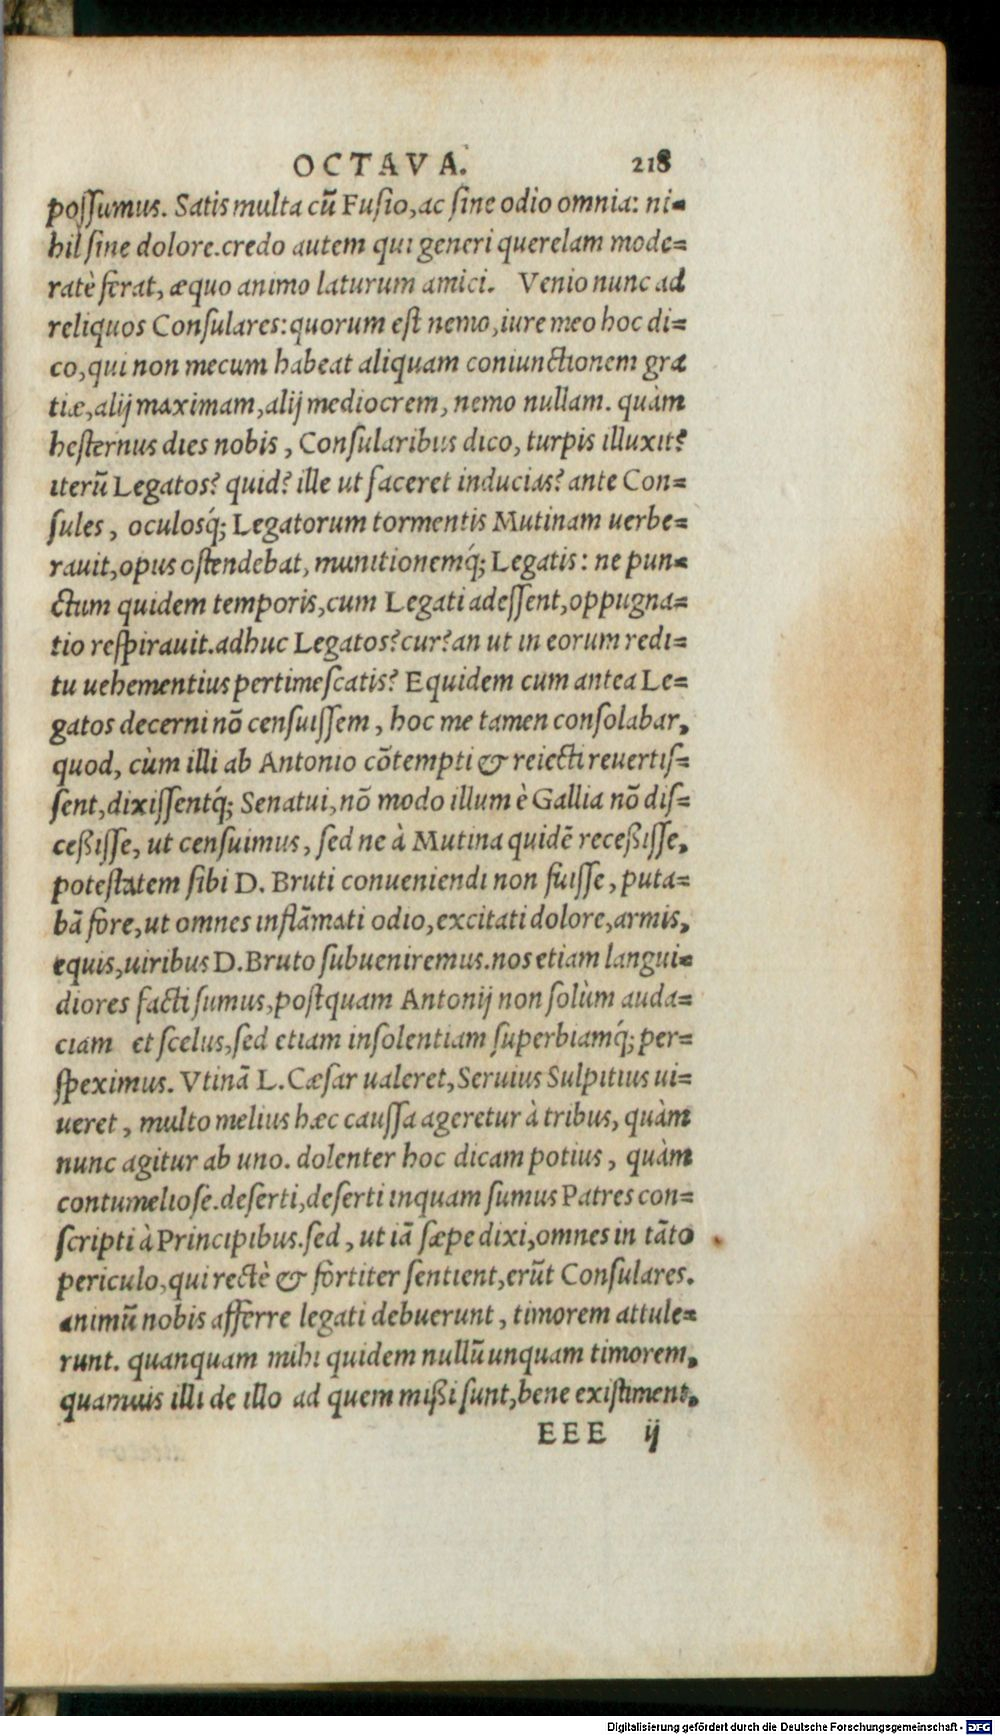 OCTAVA. 218
possumus. Satis multa cū Fusio, ac sine odio omnia: ni-
hil sine dolore. credo autem qui generi querelam mode-
ratè ferat, æquo animo laturum amici. Venio nunc ad
reliquos Consulares: quorum est nemo, iure meo hoc di-
co, qui non mecum habeat aliquam coniunctionem gra
tiæ, alij maximam, alij mediocrem, nemo nullam. quàm
hesternus dies nobis, Consularibus dico, turpis illuxit?
iterū Legatos? quid? ille ut faceret inducias? ante Con-
sules, oculosq́; Legatorum tormentis Mutinam uerbe-
rauit, opus ostendebat, munitionemq́; Legatis: ne pun-
ctum quidem temporis, cum Legati adessent, oppugna-
tio respirauit. adhuc Legatos? cur? an ut in eorum redi-
tu uehementius pertimescatis? Equidem cum antea Le-
gatos decerni nō censuissem, hoc me tamen consolabar,
quod, cùm illi ab Antonio cōtempti & reiecti reuertis-
sent, dixissentq́; Senatui, nō modo illum è Gallia nō dis-
ceßisse, ut censuimus, sed ne à Mutina quidē receßisse,
potestatem sibi D. Bruti conueniendi non fuisse, puta-
bā fore, ut omnes inflāmati odio, excitati dolore, armis,
equis, uiribus D. Bruto subueniremus. nos etiam langui-
diores facti sumus, postquam Antonij non solùm auda-
ciam et scelus, sed etiam insolentiam superbiamq́; per-
speximus. Vtinā L. Cæsar ualeret, Seruius Sulpitius ui-
ueret, multo melius hæc caussa ageretur à tribus, quàm
nunc agitur ab uno. dolenter hoc dicam potius, quàm
contumeliose. deserti, deserti inquam sumus Patres con-
scripti à Principibus. sed, ut iā sæpe dixi, omnes in tāto
periculo, qui rectè & fortiter sentient, erūt Consulares.
animū nobis afferre legati debuerunt, timorem attule-
runt. quanquam mihi quidem nullū unquam timorem,
quamuis illi de illo ad quem mißi sunt, bene existiment.
EEE ij
Digitalisierung gefördert durch die Deutsche Forschungsgemeinschaft - DFG